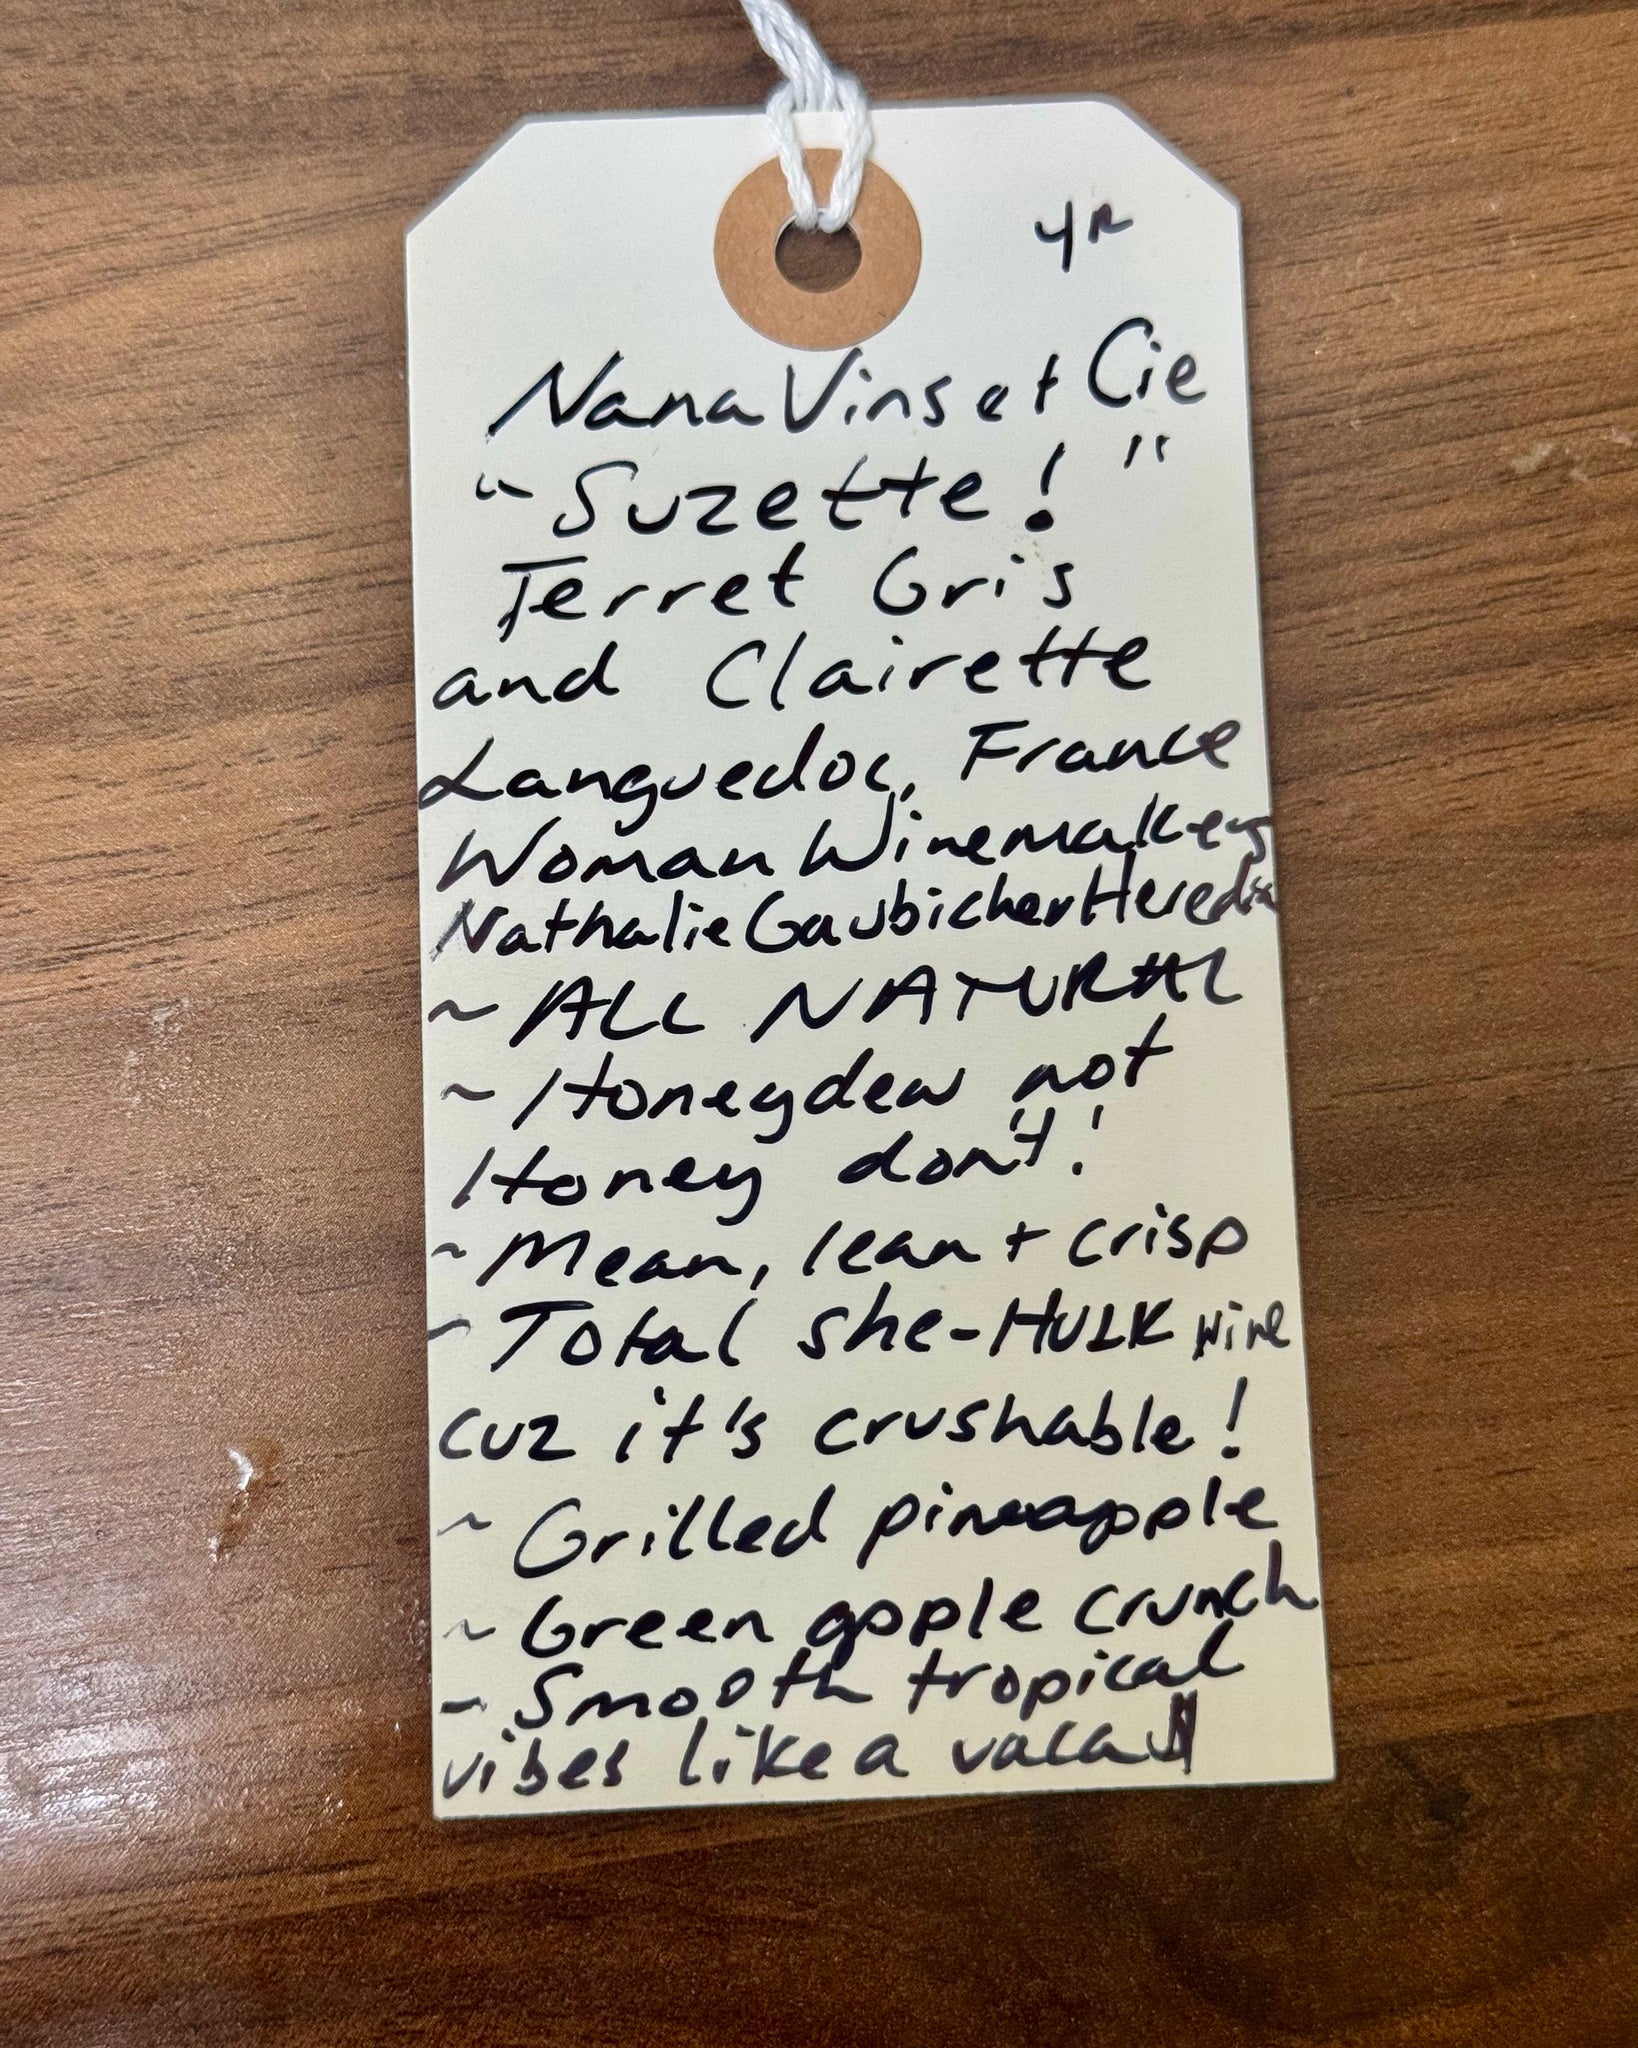 Nana Vins et Cie
"Suzette!"
Terret Gris
and Clairette
Languedoc, France
Woman Winemaker
Nathalie Gaubicher Heredia
~ ALL NATURAL
~ Honeydew not
Honey don't!
~ Mean, lean + crisp
~ Total she-HULK wine
cuz it's crushable!
~ Grilled pineapple
~ Green apple crunch
~ Smooth tropical
vibes like a vaca